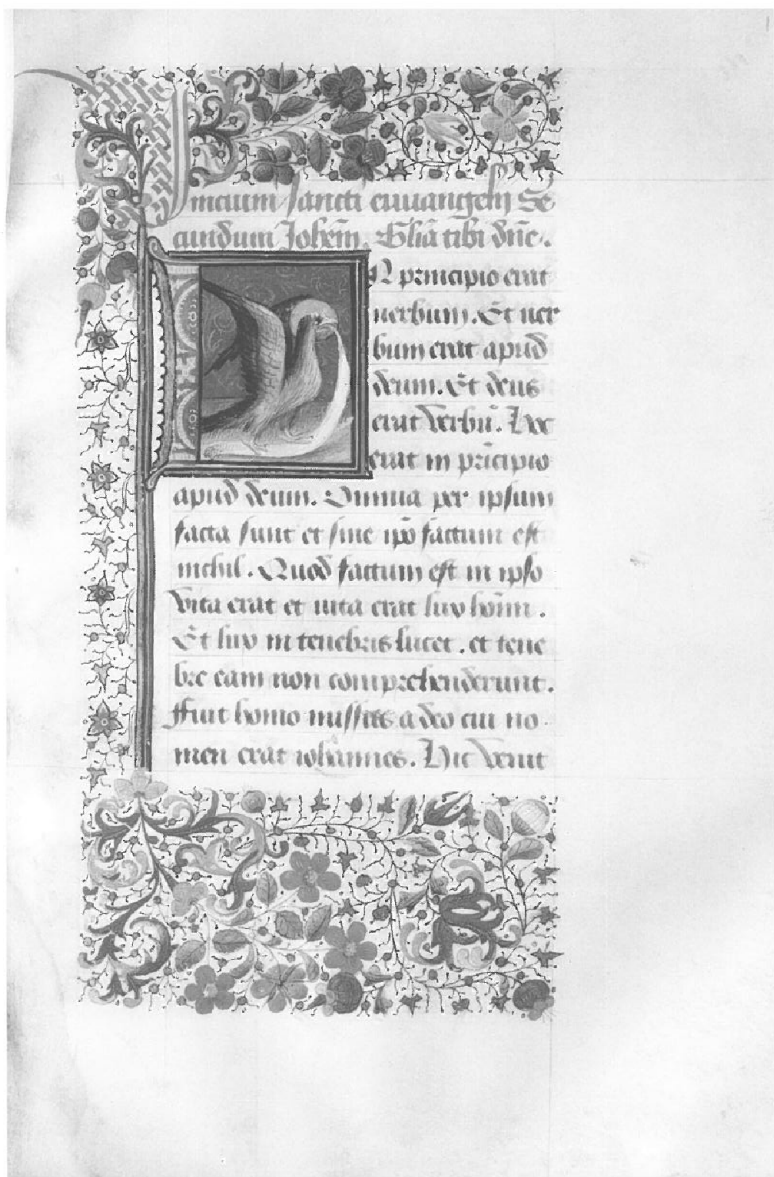 Inicium sancti euuangelij Se
cundum Johēm. Gl̄ia tibi dn̄e.
IN principio erat
uerbum. Et uer
bum erat apud
deum. Et deus
erat verbū. Hoc
erat in p̄ncipio
apud deum. Omnia per ipsum
facta sunt et sine ip̄o factum est
nichil. Quod factum est in ipso
vita erat et uita erat lux homī.
Et lux in tenebris lucet. et tene
bre eam non comprehenderunt.
ffuit homo missus a deo cui no
men erat iohannes. Hic venit